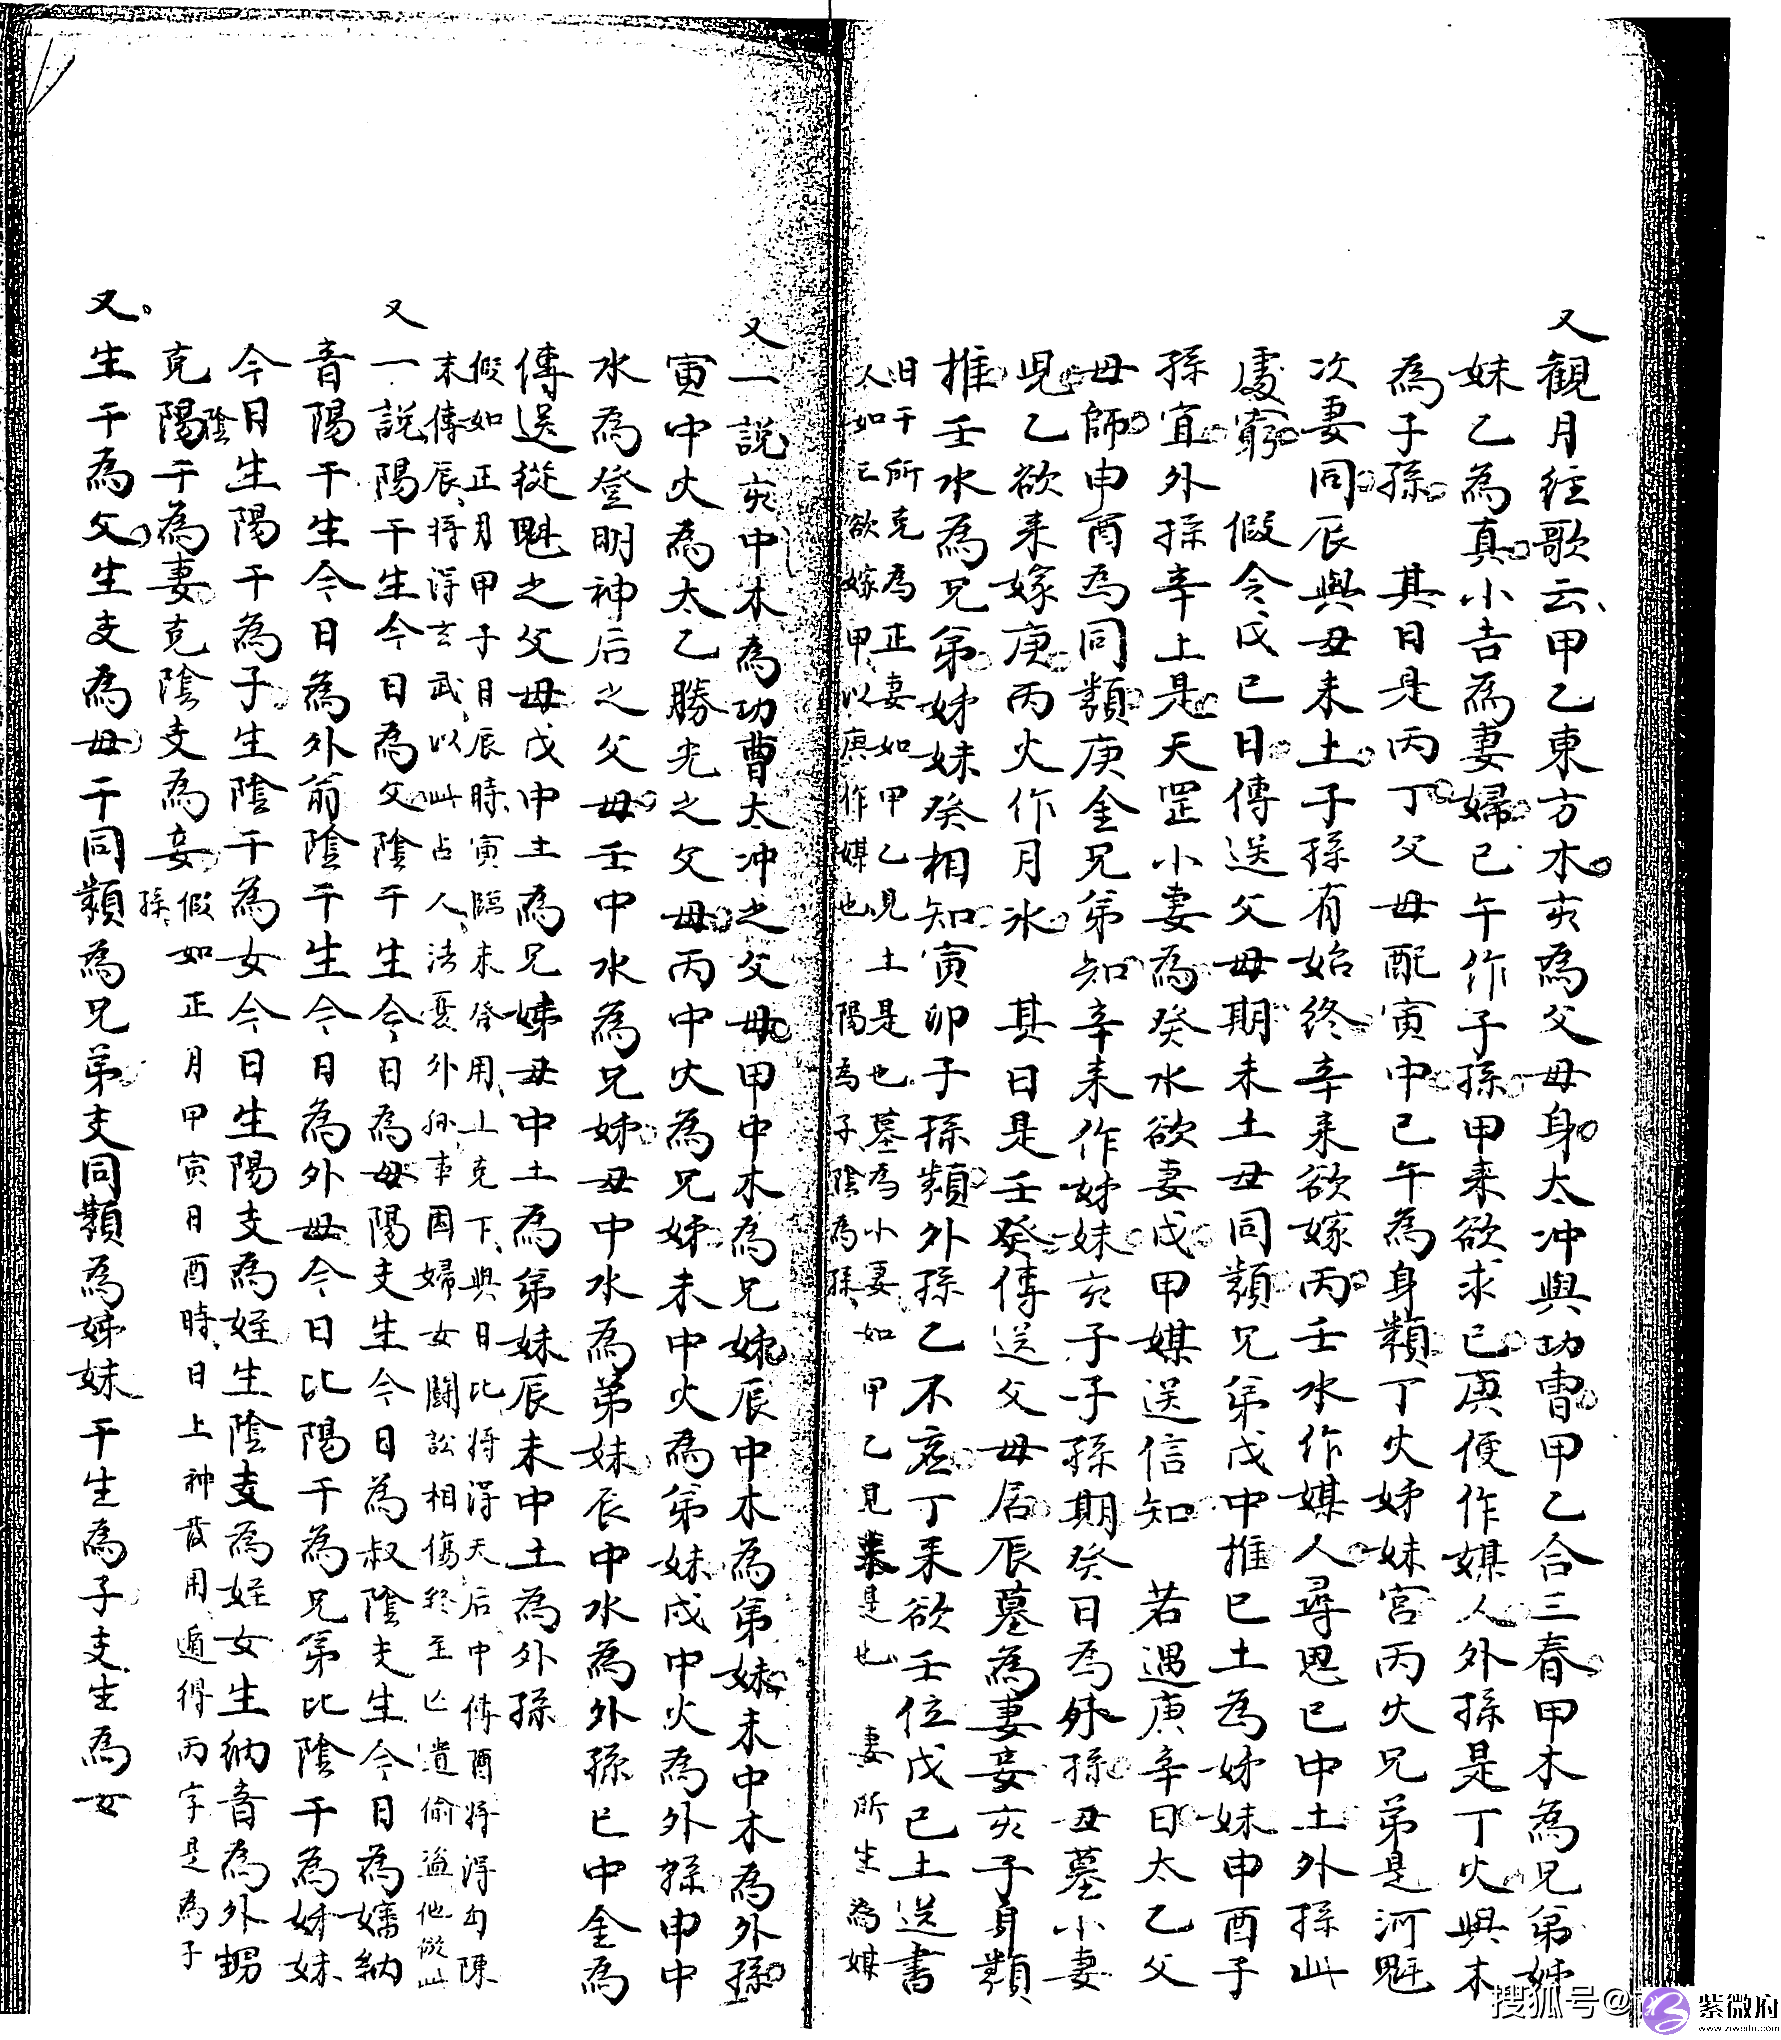 又觀月經歌云甲乙東方木亥為父母身太冲與功曹甲乙合三春甲木為兄弟姊
妹乙為真小吉為妻婦巳午作子孫甲来欲求己庚便作媒人外孫是丁火與木
為子孫 其日是丙丁父母配寅中巳午為身類丁火姊妹宮丙火兄弟是河魁
次妻同辰與丑未土子孫有始終辛来欲嫁丙壬水作媒人尋思巳中土外孫此
處窮 假令戊己日傳送父母期未土丑同類兄弟戊中推己土為姊妹申酉子
孫宜外孫辛上是天罡小妻為癸水欲妻戊甲媒送信知 若遇庚辛日太乙父
母師申酉為同類庚金兄弟知辛来作姊妹亥子子孫期癸日為外孫丑墓小妻
児乙欲来嫁庚丙火作月氷 其日是壬癸傳送父母居辰墓為妻妾亥子身類
推壬水為兄弟姊妹癸相知寅卯子孫類外孫乙不疑丁来欲壬位戊己土送書
日干所克為正妻如甲乙見土是也墓為小妻如甲乙見未是也 妻所生為媒
人如己欲嫁甲以庚作媒也 陽為子陰為孫
又一說亥中木為功曹太冲之父母甲中木為兄姊辰中木為弟妹未中木為外孫
寅中火為太乙勝光之父母丙中火為兄姊未中火為弟妹戌中火為外孫申中
水為登明神后之父母壬中水為兄姊丑中水為弟妹辰中水為外孫巳中金為
傳送從魁之父母戊中土為兄姊丑中土為弟妹辰未中土為外孫
假如正月甲子日辰時寅臨未發用上克下與日比将得天后中傳酉将得勾陳
末傳辰将得玄武以此占人法憂外孫事因婦女鬪訟相傷終至亡遺偷盗他倣此
又一說陽干生今日為父陰干生今日為母陽支生今日為叔陰支生今日為嬸納
音陽干生今日為外翁陰干生今日為外母今日比陽干為兄弟比陰干為姊妹
今日生陽干為子生陰干為女今日生陽支為姪生陰支為姪女生納音為外甥
克陽干為妻克陰支為妾假如正月甲寅日酉時日上神發用遁得丙字是為子
陰
孫
又生干為父生支為母干同類為兄弟支同類為姊妹干生為子支生為女
搜狐号@
紫微府